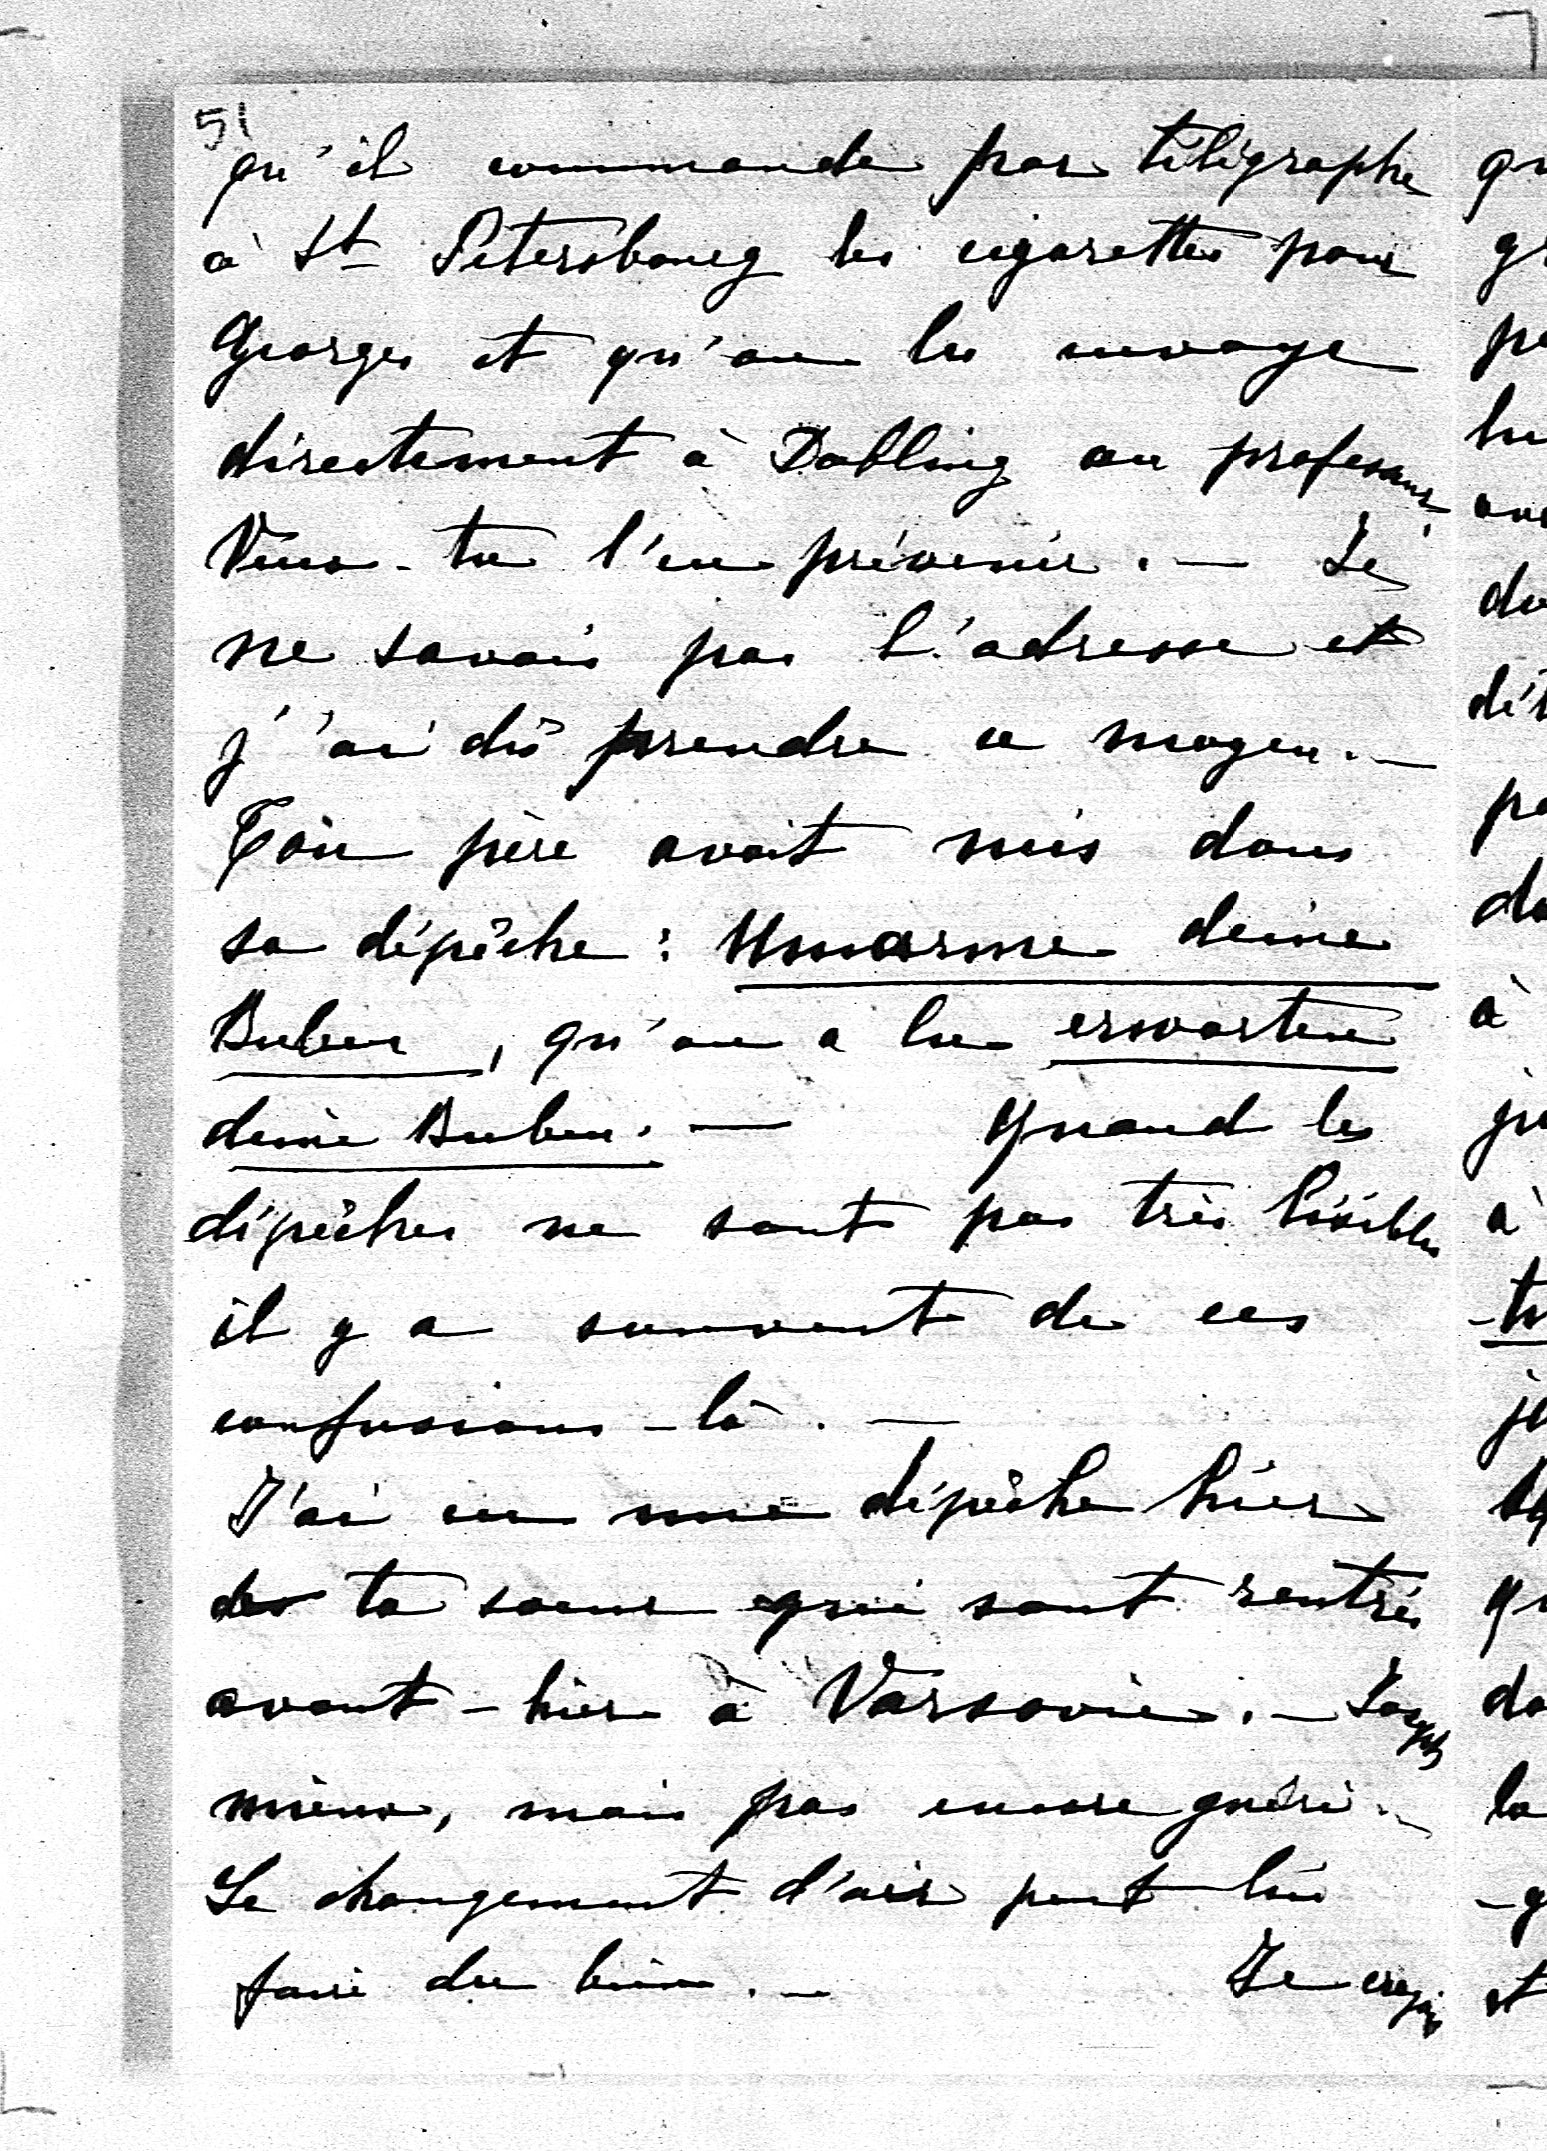 51
qu'il commande par télégraphe
à St Petersbourg les cigarettes pour
Georges et qu'on les envoye
directement à Dobling au professeur.
Veux-tu l'en prévenir. — Je
ne savais pas l'adresse et
j'ai dû prendre ce moyen. —
Ton père avait mis dans
sa dépêche : Umarme deine
Buben, qu'on a lu erwarten
deine Buben. — Quand les
dépêches ne sont pas très lisibles
il y a souvent de ces
confusions-là. —
J'ai eu une dépêche hier
de ta soeur qui sont rentrés
avant-hier à Varsovie. — Joseph
mieux, mais pas encore guéri. —
Le changement d'air peut lui
faire du bien. — Je croyais